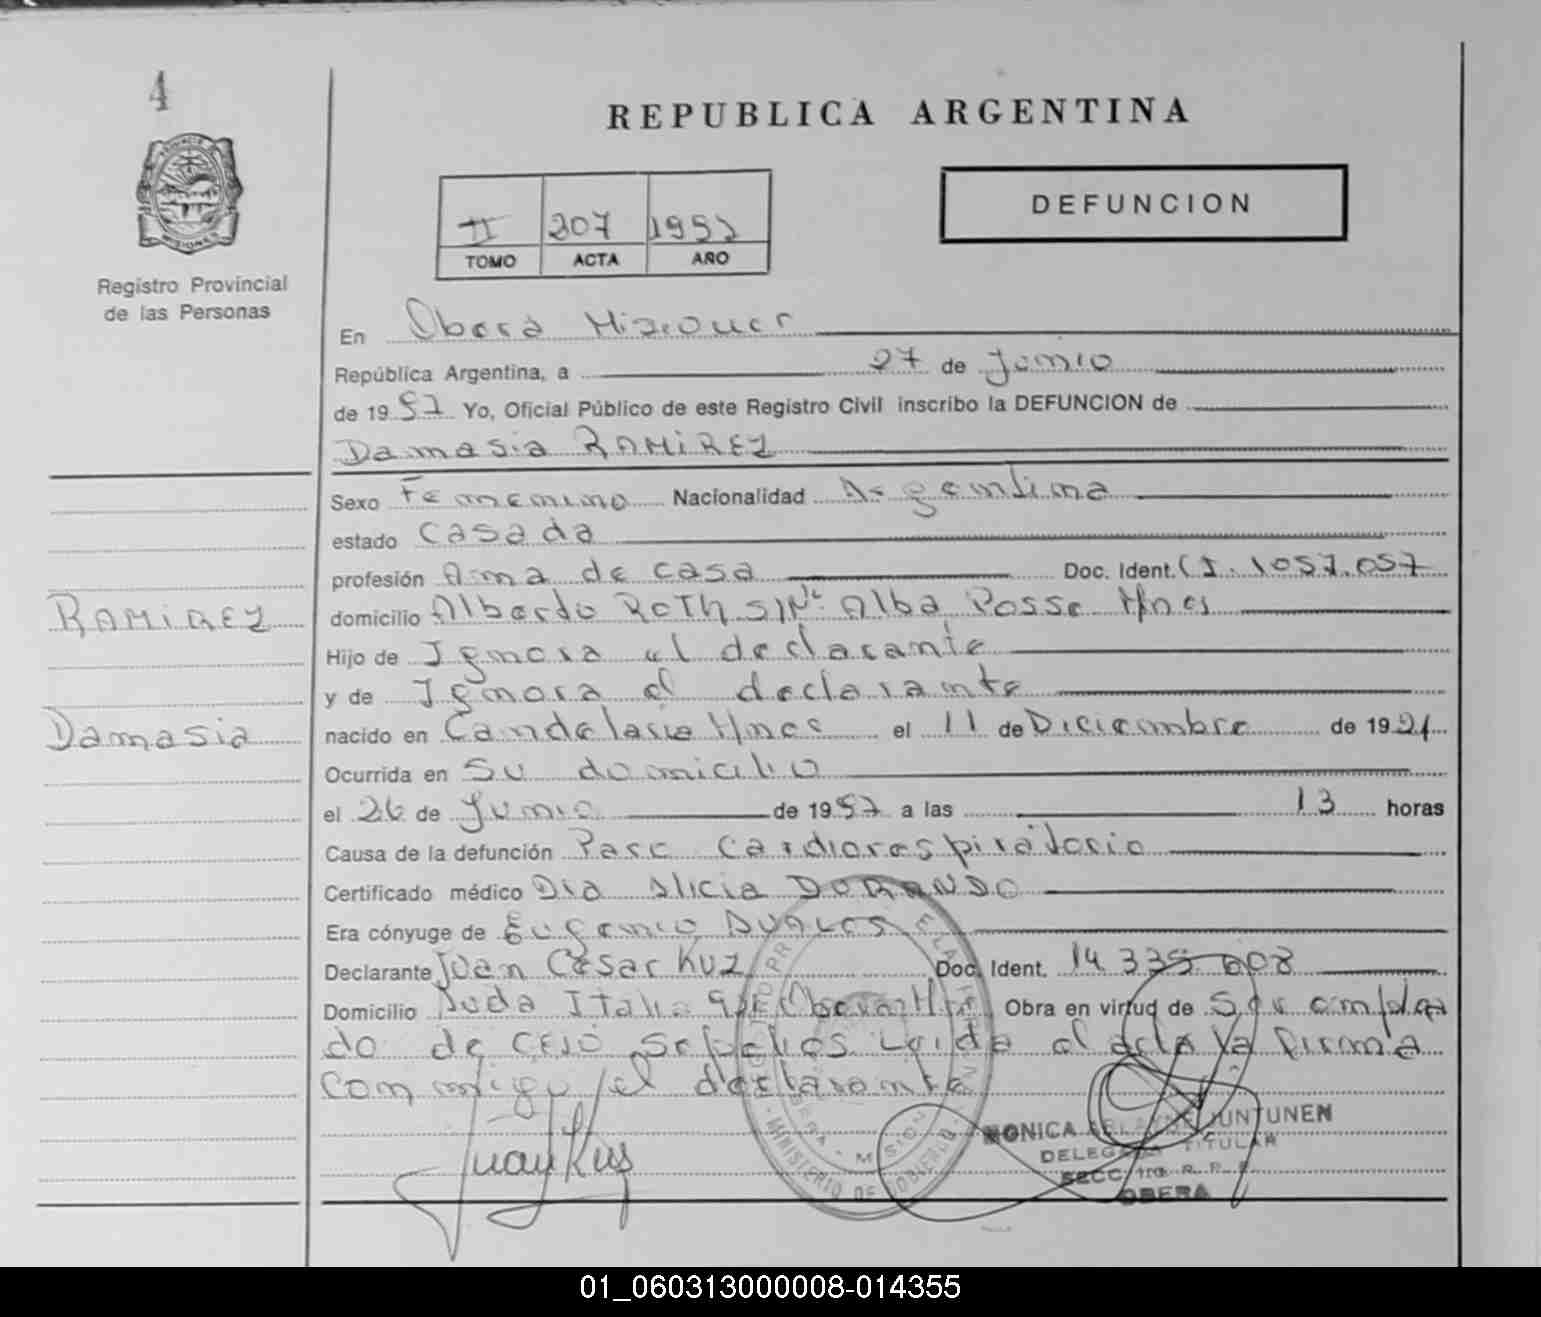 4
REPUBLICA ARGENTINA
DEFUNCION
II 207 1997
TOMO ACTA AÑO
PROVINCIA DE
MISIONES
Registro Provincial
de las Personas
En Oberá Misiones
República Argentina, a 27 de Junio
de 1997 Yo, Oficial Público de este Registro Civil inscribo la DEFUNCION de
Damasia RAMIREZ
Sexo Femenino Nacionalidad Argentina
estado Casada
profesión Ama de casa Doc. Ident. CI. 1057.057
RAMIREZ
domicilio Alberdo ROTH S/Nº Alba Posse Mnes
Hijo de Ignora el declarante
y de Ignora el declarante
Damasia
nacido en Candelaria Mnes el 11 de Diciembre de 1921
Ocurrida en Su domicilio
el 26 de Junio de 1997 a las 13 horas
Causa de la defunción Paro Cardiorespiratorio
Certificado médico Dra Alicia DORANDO
Era cónyuge de Eugenio
Declarante Juan César Kuz Doc. Ident. 14.335.008
Domicilio Italia Oberá Mnes Obra en virtud de Ser emplea
do de CELO Sepelios Leida el acta la firma
conmigo el declarante
Juan Kuz
MINISTERIO DE GOBIERNO
MONICA JUNTUNEN
DELEGADA TITULAR
SECC. 1ra R. P. P.
OBERA
01_060313000008-014355